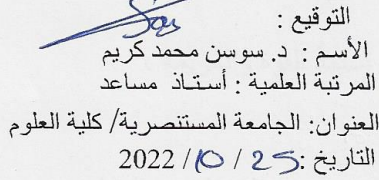 التوقيع :
الأسم : د. سوسن محمد كريم
المرتبة العلمية : أستاذ مساعد
العنوان: الجامعة المستنصرية/ كلية العلوم
التاريخ :25 / 10/ 2022